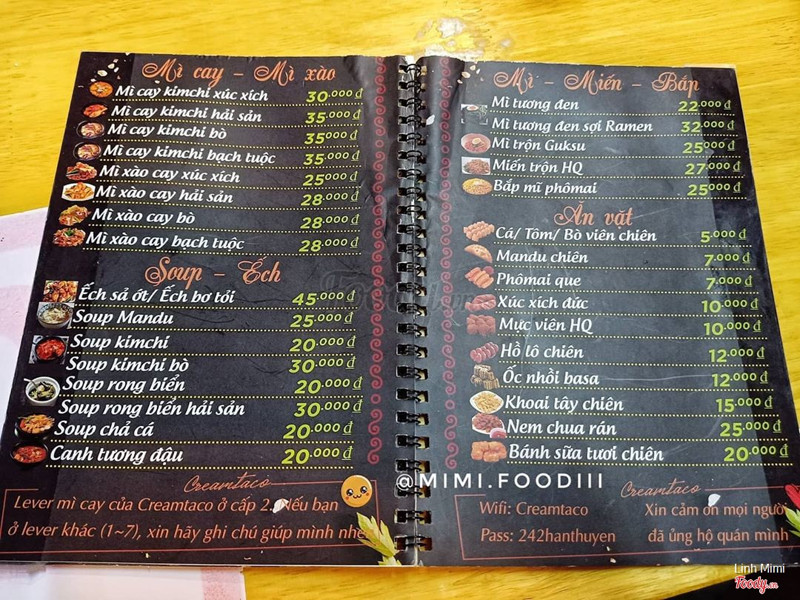 Mì cay - Mì xào
Mì cay kimchi xúc xích 30.000 đ
Mì cay kimchi hải sản 35.000 đ
Mì cay kimchi bò 35000 đ
Mì cay kimchi bạch tuộc 35.000 đ
Mì xào cay xúc xích 25000 đ
Mì xào cay hải sản 28.000 đ
Mì xào cay bò 28.000 đ
Mì xào cay bạch tuộc 28.000 đ
Soup - Ếch
Ếch sả ớt/ Ếch bơ tỏi 45.000 đ
Soup Mandu 25.000 đ
Soup kimchi 20.000 đ
Soup kimchi bò 30.000 đ
Soup rong biển 20.000 đ
Soup rong biển hải sản 30.000 đ
Soup chả cá 20.000 đ
Canh tương đậu 20.000 đ
Creamtaco
Lever mì cay của Creamtaco ở cấp 2. Nếu bạn
ở lever khác (1~7), xin hãy ghi chú giúp mình nhé
Mì - Miến - Bắp
Mì tương đen 22.000 đ
Mì tương đen sợi Ramen 32.000 đ
Mì trộn Guksu 25000 đ
Miến trộn HQ 27.000 đ
Bắp mĩ phômai 25000 đ
Ăn vặt
Cá/ Tôm/ Bò viên chiên 5.000 đ
Mandu chiên 7.000 đ
Phômai que 7.000 đ
Xúc xích đức 10.000 đ
Mực viên HQ 10.000 đ
Hồ lô chiên 12.000 đ
Ốc nhồi basa 12.000 đ
Khoai tây chiên 15.000 đ
Nem chua rán 25.000 đ
Bánh sữa tươi chiên 20.000 đ
@MIMI.FOODIII
Creamtaco
Wifi: Creamtaco
Pass: 242hanthuyen
Xin cảm ơn mọi người
đã ủng hộ quán mình
Linh Mimi
Foody.vn